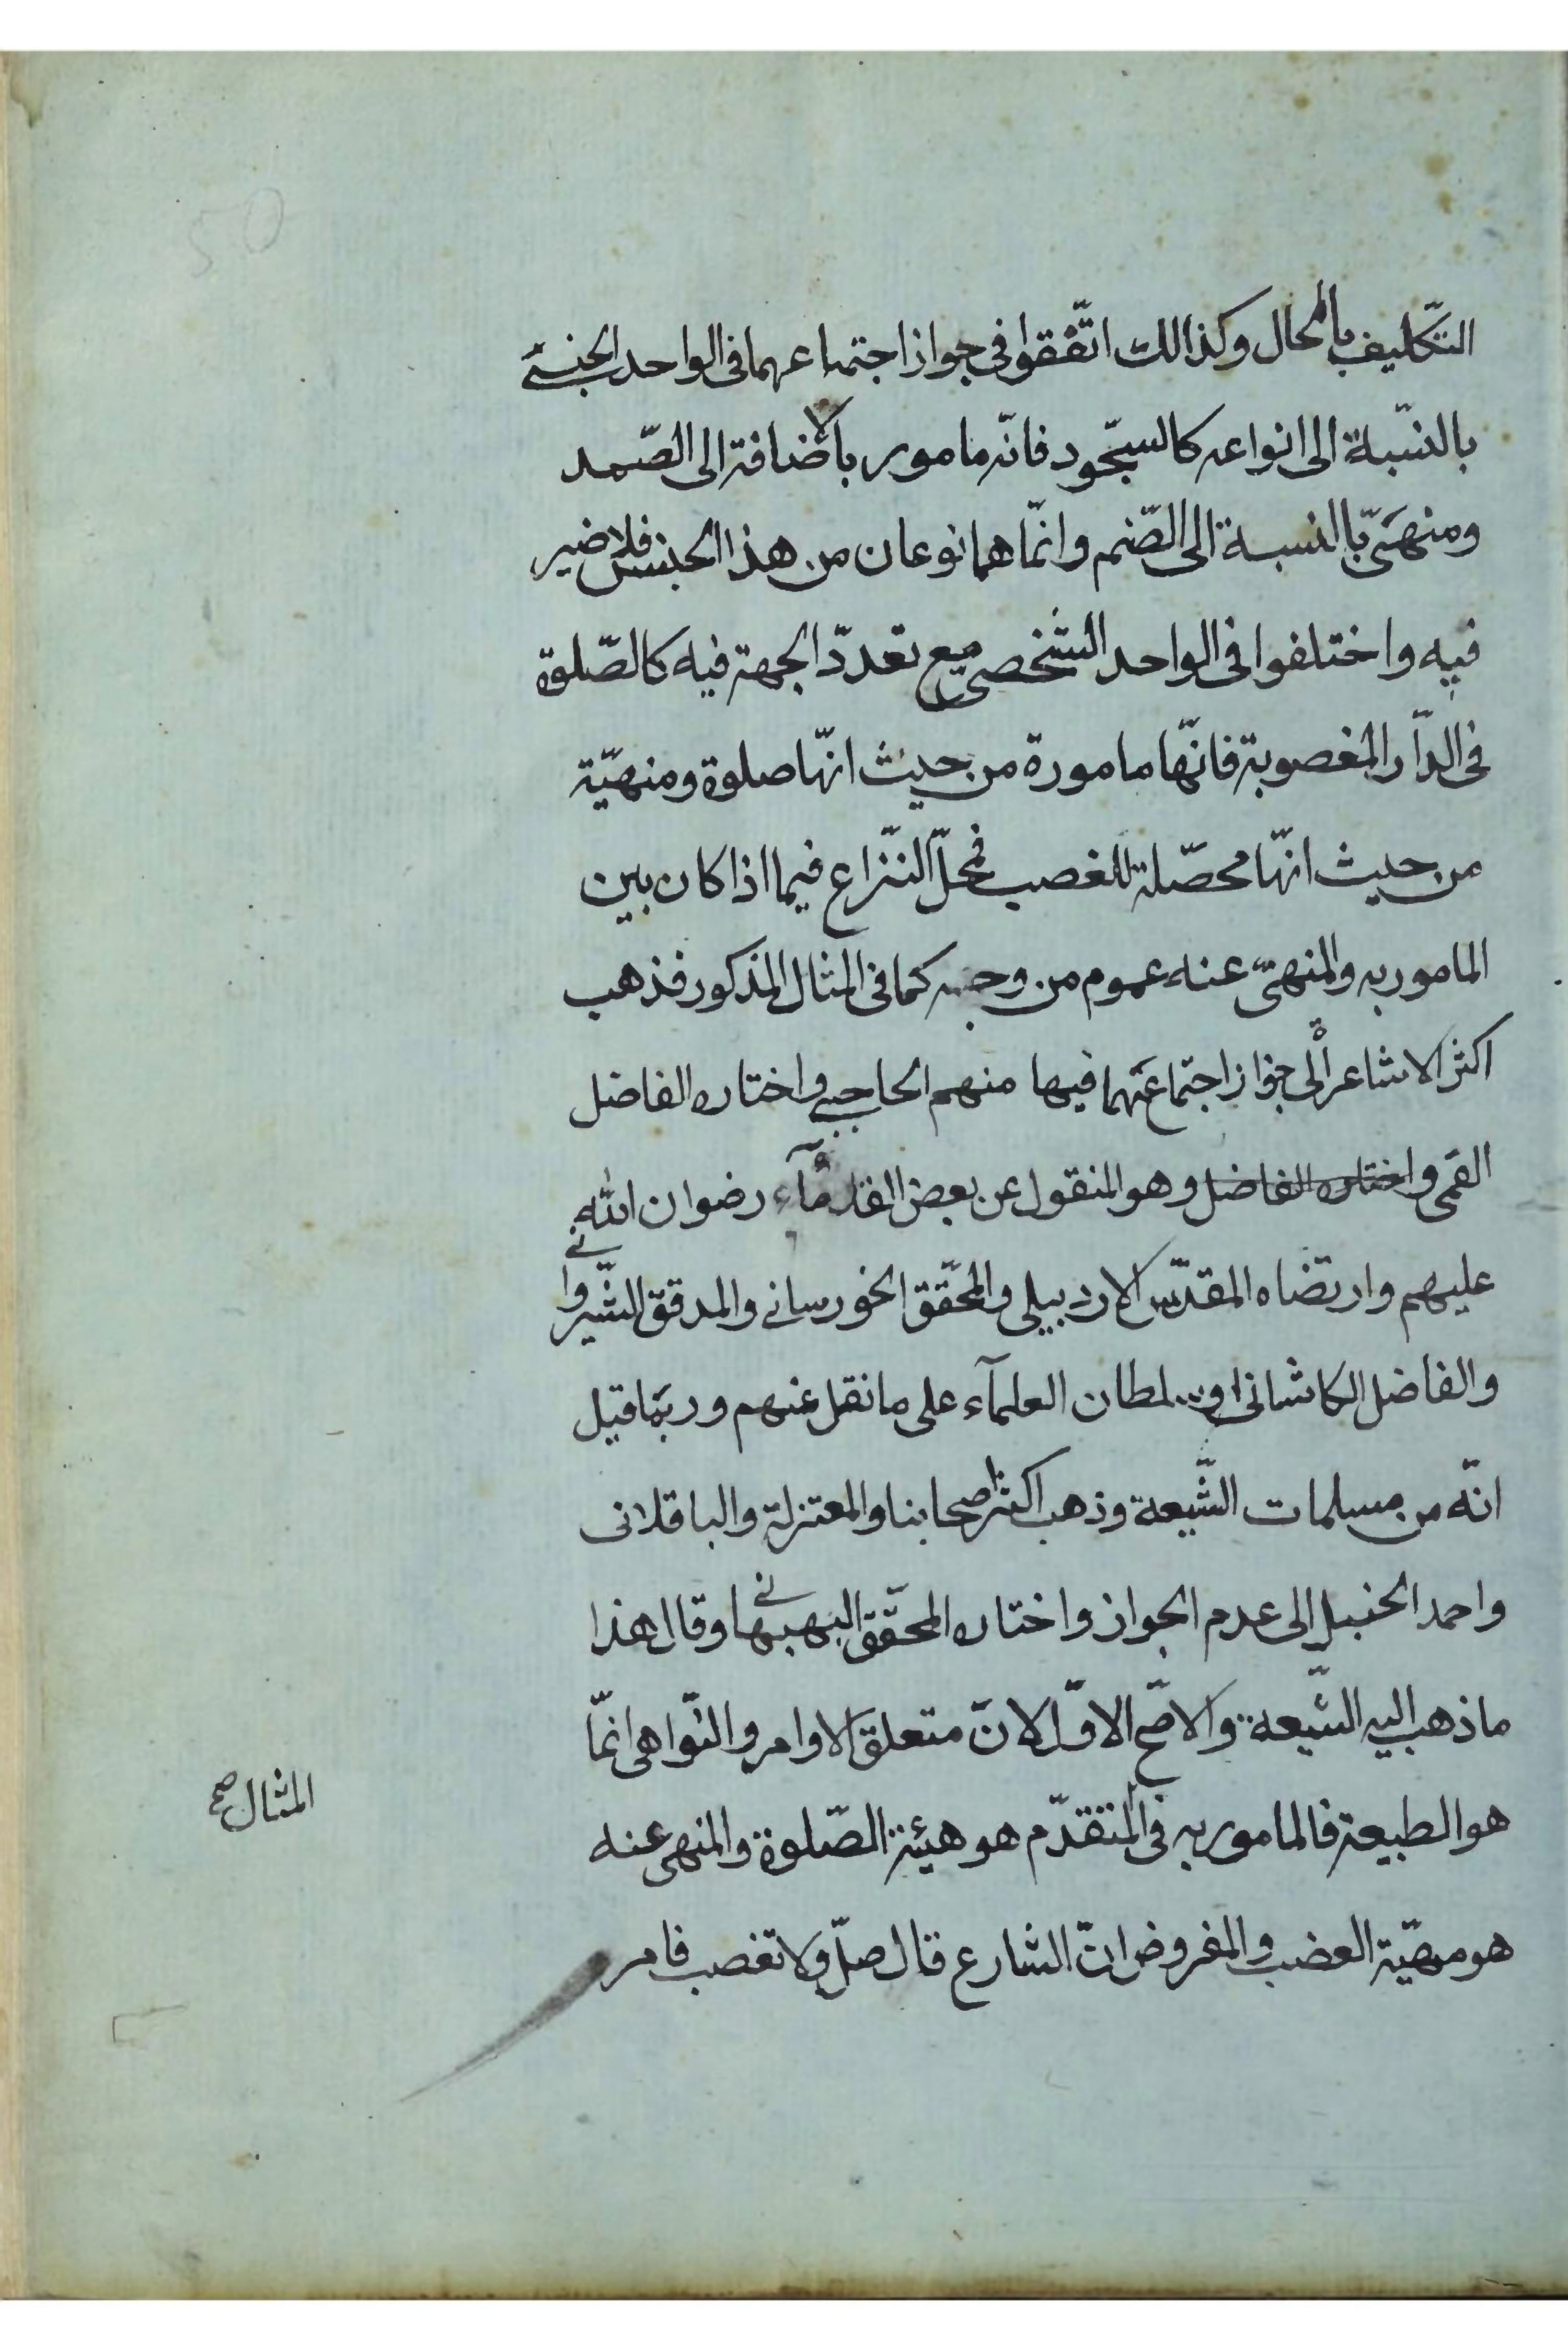 50
التّكليف بالمحال وكذالك اتّفقوا فى جواز اجتماعهما فى الواحد الجنسے
بالنسّبة الى انواعه كالسّجود فانّه مامور بالاضافة الى الصّمد
ومنهىّ بالنسبة الى الصّنم وانّما هما نوعان من هذا الجنس فلا ضير
فيه واختلفوا فى الواحد الشّخصى مع تعددّ الجهة فيه كالصّلوة
فى الدّار المغصوبة فانّها مامورة من حيث انّها صلوة ومنهيّة
من حيث انّها محصّلة للغصب فمحلّ النّزاع فيما اذا كان بين
المامور به والمنهىّ عنه عموم من وجه كما فى المثال المذكور فذهب
اكثر الاشاعرة الى جواز اجتماعهما فيها منهم الحاجبے واختاره الفاضل
القمى واختاره الفاضل وهو المنقول عن بعض القدمآء رضوان الله
عليهم وارتضاه المقدّس الاردبيلى والمحقّق الخورسانے والمدقق الشّيروانے
والفاضل الكاشانى وسلطان العلمآء على ما نقل عنهم وربّما قيل
انّه من مسلمات الشّيعة وذهب اكثر اصحابنا والمعتزلة والباقلانى
واحمد الحنبل الى عدم الجواز واختاره المحقّق البهبهانے وقال هذا
ما ذهب اليه الشّيعة والاصّح الاوّل لانّ متعلق الاوامر والنّواهى انّما
هو الطبيعة فالمامور به فى المتقدّم هو هيئة الصّلوة والمنهى عنه
المثال صح
هو مهيّة الغضب والمفروض انّ الشارع قال صلّ ولا تغصب فامر